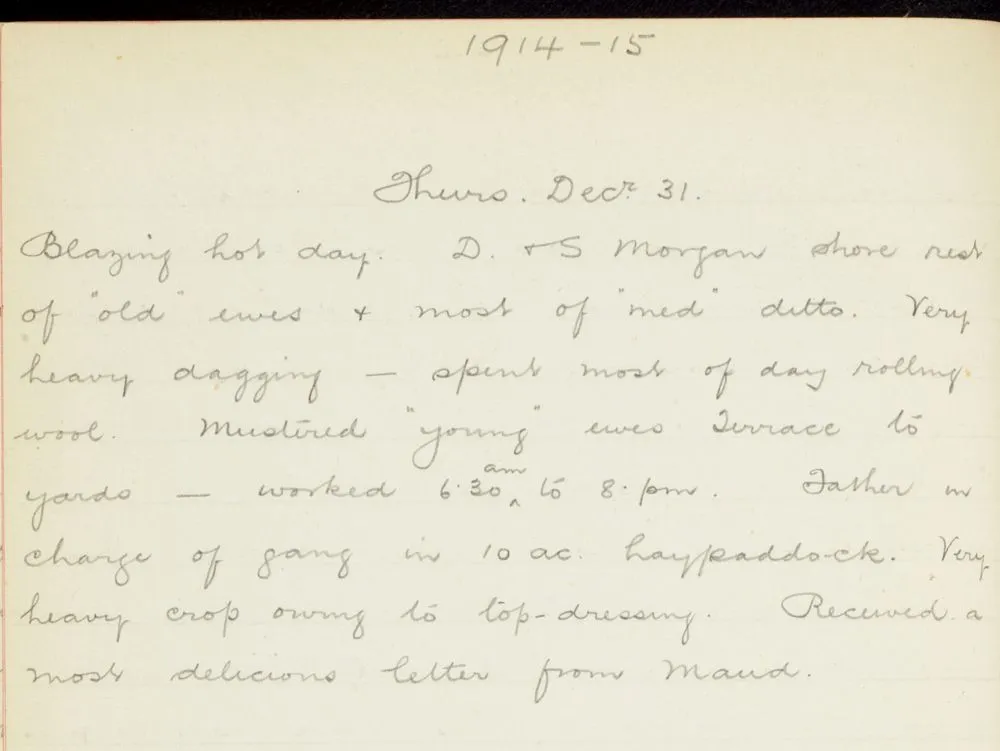 1914-15
Thurs. Decr. 31.
Blazing hot day. D. + S Morgan shore rest
of "old" ewes + most of "med" ditto. Very
heavy dagging — spent most of day rolling
wool. Mustered "young" ewes Terrace to
yards — worked 6.30 am to 8. pm. Father in
charge of gang in 10 ac. haypaddock. Very
heavy crop owing to top-dressing. Received a
most delicious letter from Maud.